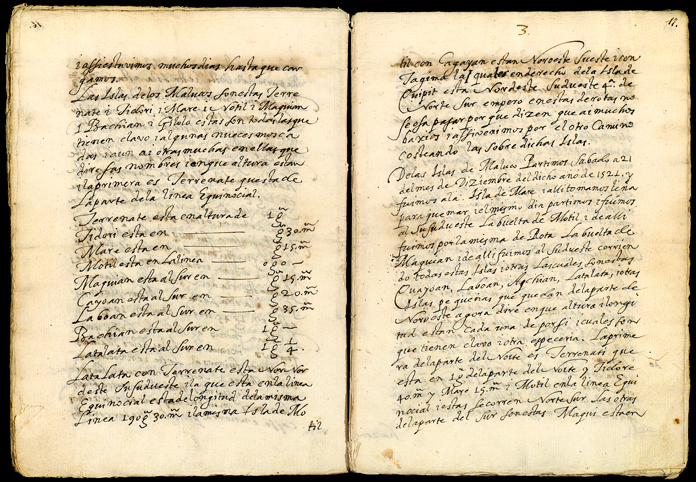 i assi estuvimos muchos dias hasta que car
gamos.
Las Islas de los Malucos son estas Terre
nate i Tidori i Mare i Motil i Maquian
i Bachian i Gilolo estas son todas las que
tienen clavo i algunas nueces mosca
das i aun ai otras muchas en ellas que
dire sus nombres i en que altura estan
i la primera es Terrenate questa de
la parte de la linea Equinocial.
Terrenate esta en altura de 1 g̃
Tidori esta en 0 g̃ 30. m̃
Mare esta en 0 g̃ 15. m̃
Motil esta en la linea 0 0 0
Maquian esta al Sur en 0 g̃ 15. m̃
Cayoan esta al Sur en 0 g̃ 20. m̃
Laboan esta al Sur en 0 g̃ 35. m̃
Bachian esta al Sur en 1 g̃
Latalata esta al Sur en 1 g̃
Lata Lata con Terrenate esta Nor Nor
deste Susudueste i la que esta en la linea
Equinocial esta de longitud de la misma
Linea 190 g̃ 30. m̃ i la mesma Isla de Mo
til
3.
17.
til con Cagayan estan Noroeste Sueste i con
Tagima la qual es en derecho de la Isla de
Quipit esta Nordeste Sudueste q.ᵃ de
Norte Sur empero en estas derotas no
se osa pasar por que dizen que ai muchos
baxios i assi venimos por el otro Camino
costeando las sobre dichas Islas.
De las Islas de Maluco Partimos Sabado a 21
del mes de Diziembre del dicho año de 1521. y
fuimos a la Isla de Mare i alli tomamos leña
para quemar i el mesmo dia partimos i fuemos
al Susudueste la buelta de Motil i de alli
fuimos por la mesma de Rota la buelta de
Maquian i de alli fuimos al Sudueste corrien
do todas estas Islas i otras Las cuales son estas
Cuayoan, Laboan, Agchian, Latalata, i otras
Islas pequeñas que quedan de la parte de
Noroeste agora dire en que altura i longi
tud estan Cada una de por si i cuales son
que tienen clavo i otra especeria. La prime
ra de la parte del Norte es Terrenati que
esta en 1 g̃ de la parte del Norte y Tidore
40. m y Mare 15. m̃ i Motil en la linea Equi
nocial i estas se corren Norte Sur. Las otras
de la parte del Sur son estas Maqui esta en